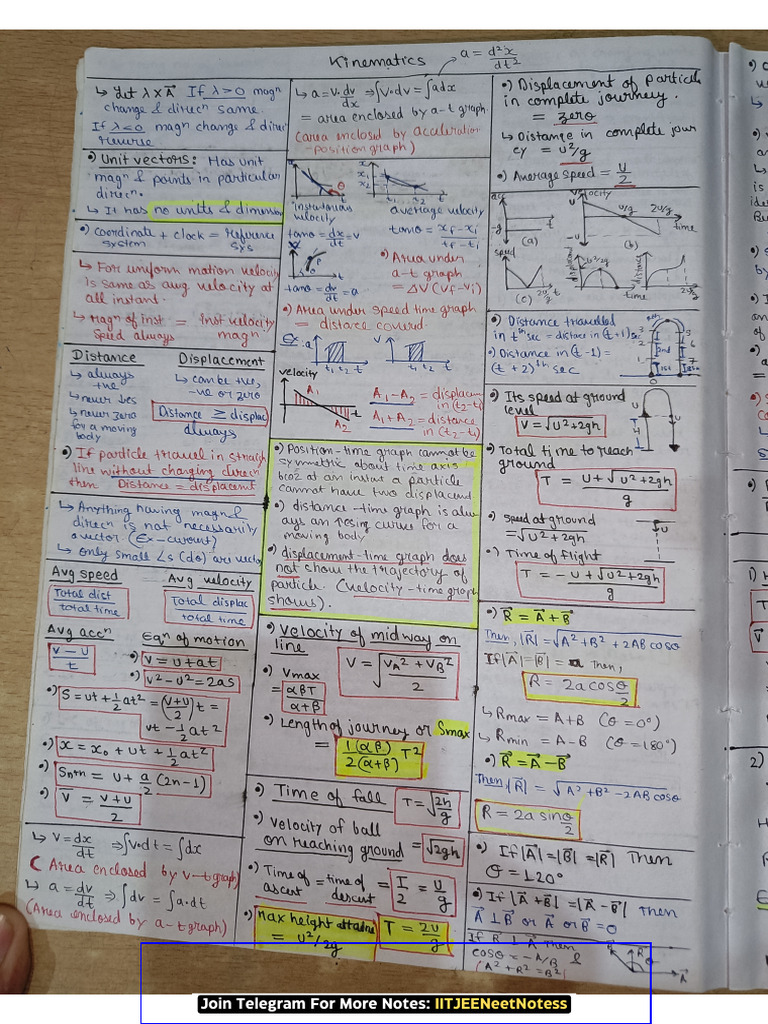 Kinematics
a = d²x/dt²
↳ Let λ × A⃗ If λ>0 magn
change & direcn same.
If λ<0 magn change & direc
reverse
•) Unit vectors: Has unit
magn & points in particular
direcn.
↳ It has no units & dimension
•) Coordinate + clock = Reference
system sys
↳ For uniform motion velocity
is same as avg velocity at
all instant.
↳ Magn of inst = Inst velocity
speed always magn
Distance Displacement
↳ always +ve
↳ can be +ve, -ve or zero
↳ never zero
for a moving
body
Distance ≥ displac
always
•) If particle travel in straigh
line without changing direcn
then Distance = displacemt
↳ Anything having magn &
direcn is not necessarity
a vector (Ex - current)
↳ only small ∠s (dθ) are vector
Avg speed Avg velocity
Total dist/total time
Total displac/total time
Avg accn Eqn of motion
v - u/t
•) v = u + at
•) v² - u² = 2as
•) S = ut + 1/2 at² = (v+u/2) t =
vt - 1/2 at²
•) x = x₀ + ut + 1/2 at²
•) Snth = u + a/2 (2n-1)
•) V̅ = v+u/2
↳ V = dx/dt ⇒ ∫v·dt = ∫dx
(Area enclosed by v-t graph)
↳ a = dv/dt ⇒ ∫dv = ∫a·dt
(Area enclosed by a-t graph)
↳ a = v·dv/dx ⇒ ∫v·dv = ∫adx
= area enclosed by a-t graph
(area enclosed by aceleration
-position graph)
instantanious
velocity
tanθ = dx/dt = v
average velocity
tanθ = xf - xi/tf - ti
tanθ = dv/dt = a
•) Area under
a-t graph
= ΔV (Vf - Vi)
•) Area under speed time graph
= distance covered
Ex: a
t₁ t₂ t
v
t₁ t₂ t
velocity
A₁
A₂
t
A₁ - A₂ = displacem
in (t₂-t₁)
A₁ + A₂ = distance
in (t₂-t₁)
•) Position-time graph cannot be
symmetric about time axis
bcoz at an instant a particle
cannot have two displacemt
•) distance-time graph is alw
ays an nesing curve for a
moving body
•) displacement-time graph does
not show the trajectory of
particle. (velocity-time graph
shows).
•) Velocity of midway on
line
V = √VA² + VB²/2
•) Vmax
= αβT/α+β
•) Length of journey or Smax
= 1(αβ)/2(α+β) T²
•) Time of fall T = √2h/g
•) Velocity of ball
on reaching ground = √2gh
•) Time of ascent = time of descent = T/2 = u/g
•) Max height attaine
= u²/2g
T = 2u/g
•) Displacement of particle
in complete journey.
= zero
↳ Distance in complete jour
ey = u²/g
•) Average speed = u/2
acc
-g
t
(a)
velocity
u/g 2u/g
-u
time
(b)
speed
2u/g t
(c)
time
distance
2u/g
•) Distance travelled
in tth sec = distace in (t+1) sec
•) Distance in (t-1) =
(t+2)th sec
•) Its speed at ground
level
V = √u² + 2gh
•) Total time to reach
ground
T = u + √u² + 2gh/g
•) speed at ground
= √u² + 2gh
•) Time of flight
T = -u + √u² + 2gh/g
•) R⃗ = A⃗ + B⃗
Then, |R⃗| = √A² + B² + 2AB cosθ
If |A⃗| = |B⃗| = a Then,
R = 2a cos θ/2
↳ Rmax = A+B (θ = 0°)
↳ Rmin = A-B (θ = 180°)
•) R⃗ = A⃗ - B⃗
Then |R⃗| = √A² + B² - 2AB cosθ
R = 2a sin θ/2
•) If |A⃗| = |B⃗| = |R⃗| Then
θ = 120°
•) If |A⃗ + B⃗| = |A⃗ - B⃗| Then
A⃗ ⊥ B⃗ or A⃗ or B⃗ = 0
If R⃗ ⊥ A⃗ Then
cosθ = -A/B &
(A² + R² = B²)
Join Telegram For More Notes: IITJEENeetNotess